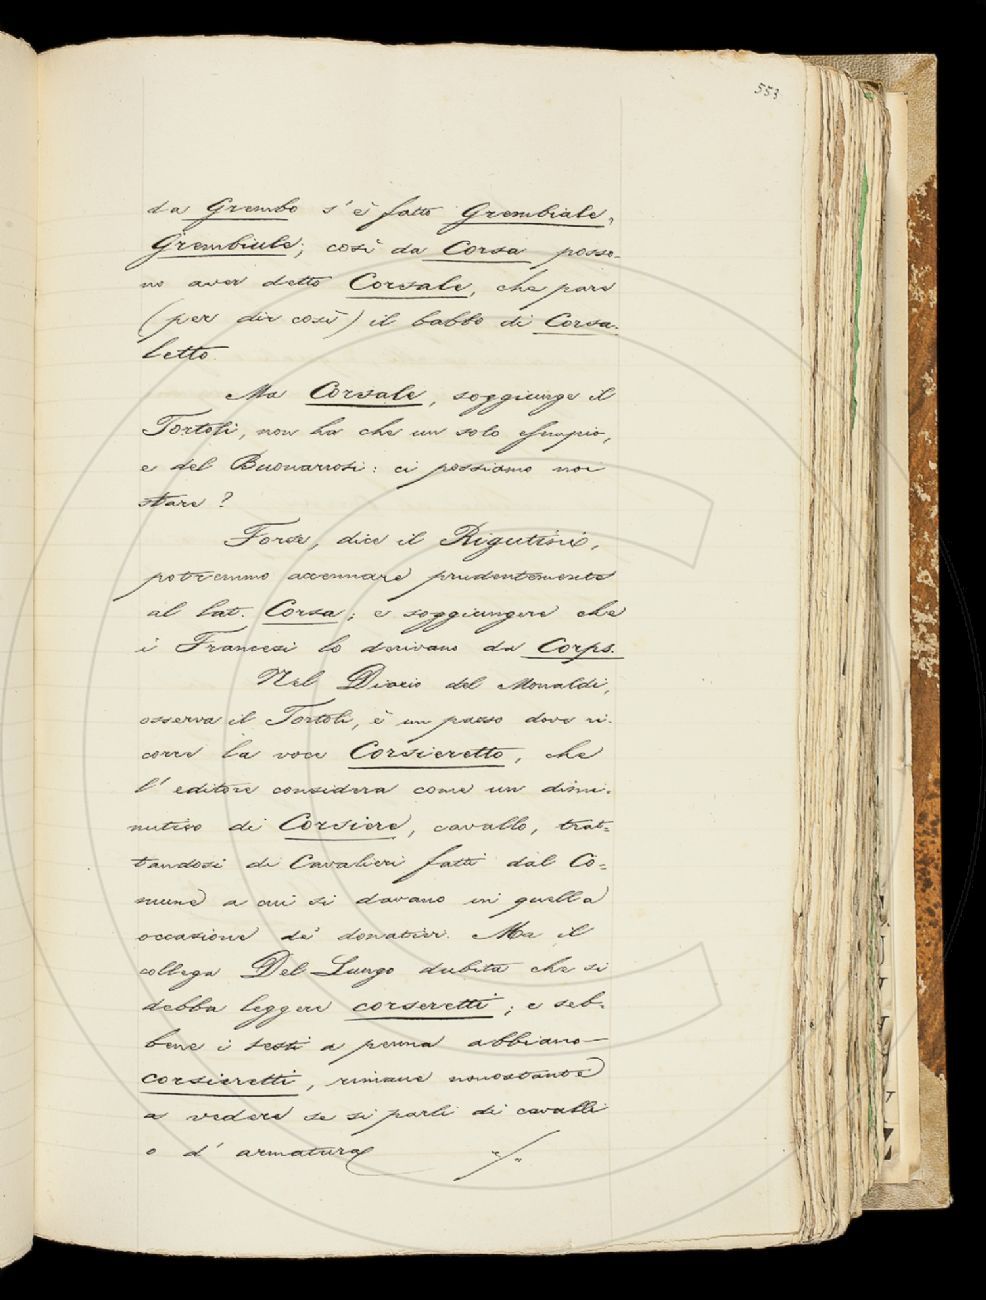 553
da Grembo s'è fatto Grembiale,
Grembiule; così da Corsa posso-
no aver detto Corsale, che pare
(per dir così) il babbo di Corsa-
letto.
Ma Corsale, soggiunge il
Tortoli, non ha che un solo esempio,
e del Buonarroti: ci possiamo noi
stare?
Forse, dice il Rigutini,
potremmo accennare prudentemente
al lat. Corsa; e soggiungere che
i Francesi lo derivano da Corps.
Nel Diario del Monaldi,
osserva il Tortoli, è un passo dove ri-
corre la voce Corsieretto, che
l'editore considera come un dimi-
nutivo di Corsiere, cavallo, trat-
tandosi di Cavalieri fatti dal Co-
mune a cui si davano in quella
occasione de' donativi. Ma il
collega Del Lungo dubita che si
debba leggere corseretti; e seb-
bene i testi a penna abbiano
corsieretti, rimane nonostante
a vedere se si parli di cavalli
o d'armatura